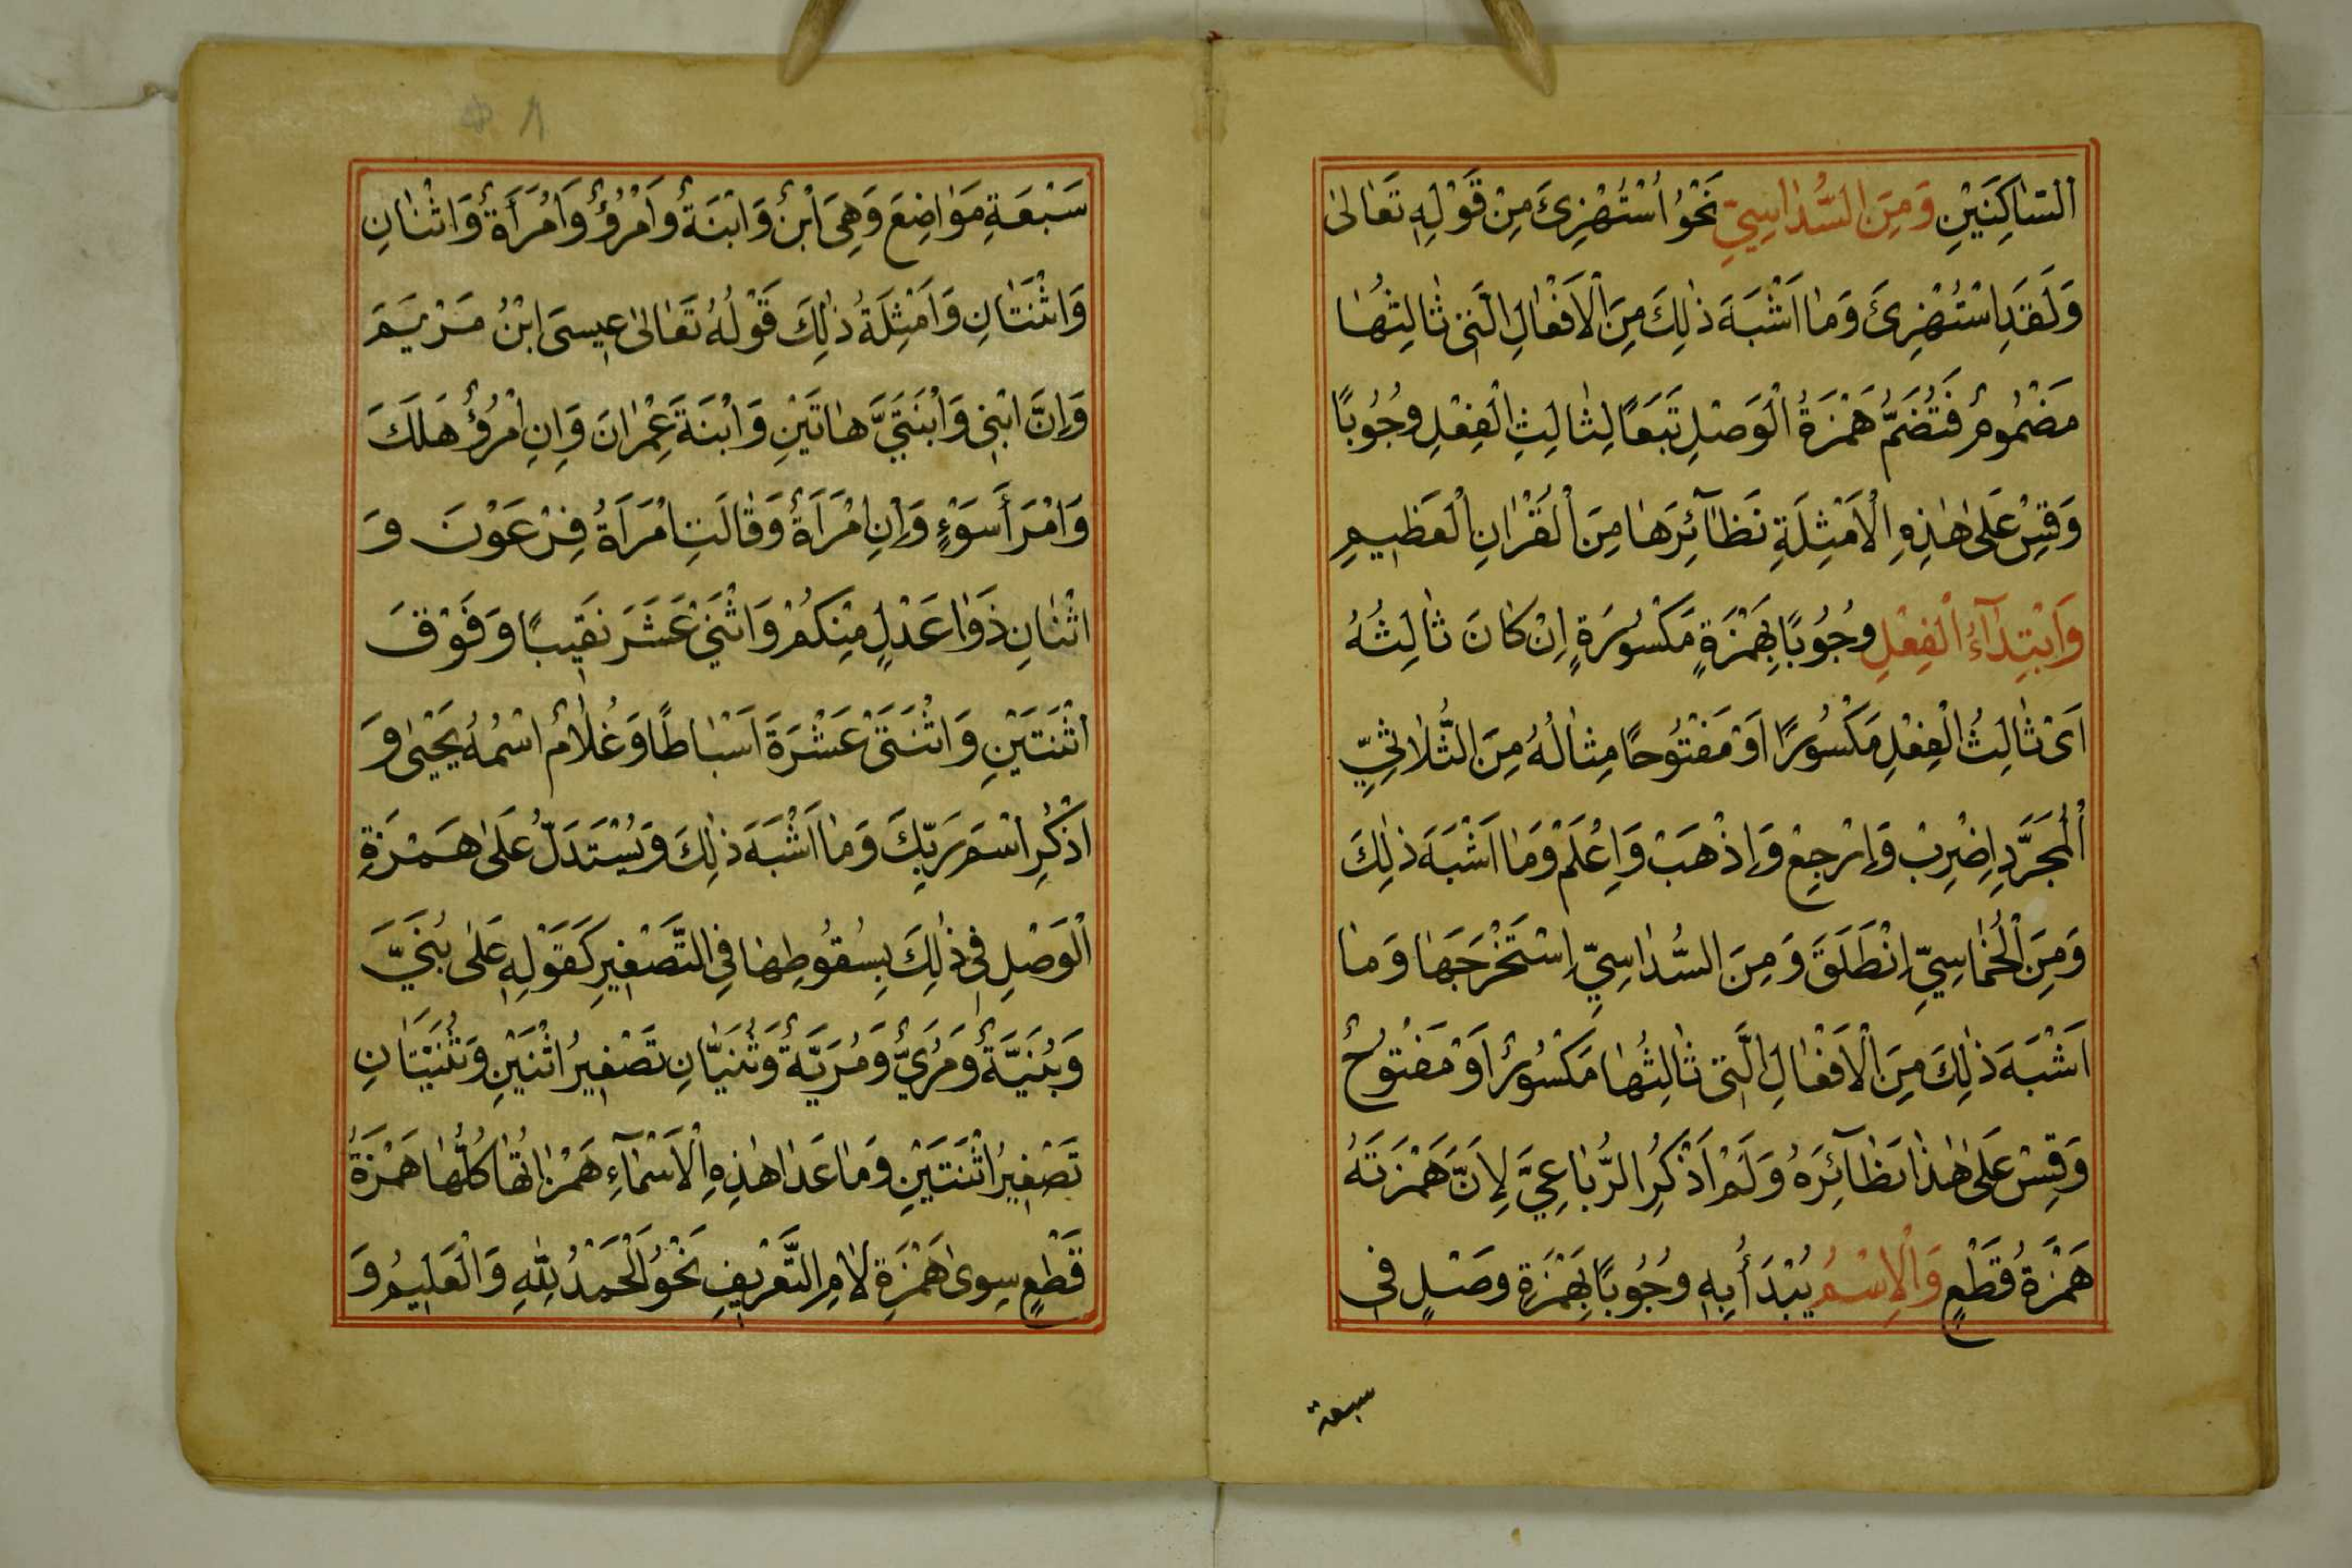 اَلسّاكِنَيْنِ وَمِنَ السُّدٰاسِيِّ نَحْوُ اُسْتُهْزِئَ مِنْ قَوْلِهٖ تَعَالىٰ
وَلَقَدِ اسْتُهْزِئَ وَمٰا اَشْبَهَ ذٰلِكَ مِنَ الْاَفْعٰالِ الَّتٖى ثٰالِثُهٰا
مَضْمُومٌ فَتُضَمُّ هَمْزَةُ الْوَصْلِ تَبَعًا لِثٰالِثِ الْفِعْلِ وُجُوبًا
وَقِسْ عَلىٰ هٰذِهِ الْاَمْثِلَةِ نَظٰآئِرَهٰا مِنَ الْقُرْاٰنِ الْعَظٖيمِ
وَابْتِدَآءُ الْفِعْلِ وُجُوبًا بِهَمْزَةٍ مَكْسُورَةٍ اِنْ كٰانَ ثٰالِثُهُ
اَىْ ثٰالِثُ الْفِعْلِ مَكْسُورًا اَوْ مَفْتُوحًا مِثٰالُهُ مِنَ الثُّلاٰثِيِّ
الْمُجَرَّدِ اِضْرِبْ وَاِرْجِعْ وَاِذْهَبْ وَاِعْلَمْ وَمٰا اَشْبَهَ ذٰلِكَ
وَمِنَ الْخُمٰاسِيِّ اِنْطَلَقَ وَمِنَ السُّدٰاسِيِّ اِسْتَخْرَجَهٰا وَمٰا
اَشْبَهَ ذٰلِكَ مِنَ الْاَفْعٰالِ الَّتٖى ثٰالِثُهٰا مَكْسُورٌ اَوْ مَفْتُوحٌ
وَقِسْ عَلىٰ هٰذٰا نَظٰآئِرَهُ وَلَمْ اَذْكُرِ الرُّبٰاعِيَّ لِاَنَّ هَمْزَتَهُ
هَمْزَةُ قَطْعٍ وَالْاِسْمُ يُبْدَأُ بِهٖ وُجُوبًا بِهَمْزَةِ وَصْلٍ فٖى
سبعة
سَبْعَةِ مَوٰاضِعَ وَهِىَ ابْنٌ وَابْنَةٌ وَامْرُؤٌ وَامْرَأَةٌ وَاثْنٰانِ
وَاثْنَتٰانِ وَاَمْثِلَةُ ذٰلِكَ قَوْلُهُ تَعٰالىٰ عٖيسَى ابْنُ مَرْيَمَ
وَاِنَّ ابْنٖى وَابْنَتَيَّ هٰاتَيْنِ وَابْنَةَ عِمْرٰانَ وَاِنِ امْرُؤٌ هَلَكَ
وَامْرَأَ سَوْءٍ وَاِنِ امْرَاَةٌ وَقٰالَتِ امْرَاَةُ فِرْعَوْنَ وَ
اثْنٰانِ ذَوٰا عَدْلٍ مِنْكُمْ وَاثْنَىْ عَشَرَ نَقٖيبًا وَفَوْقَ
اثْنَتَيْنِ وَاثْنَتَىْ عَشْرَةَ اَسْبٰاطًا وَغُلاٰمٌ اسْمُهُ يَحْيىٰ وَ
اذْكُرِ اسْمَ رَبِّكَ وَمٰا اَشْبَهَ ذٰلِكَ وَيُسْتَدَلُّ عَلىٰ هَمْزَةِ
الْوَصْلِ فٖى ذٰلِكَ بِسُقُوطِهٰا فِى التَّصْغٖيرِ كَقَوْلِهٖ عَلىٰ بُنَيَّ
وَبُنَيَّةٌ وَمُرَيٌّ وَمُرَيَّةٌ وَثُنَيّٰانِ تَصْغٖيرُ اثْنَيْنِ وَثُنَيَّتٰانِ
تَصْغٖيرُ اثْنَتَيْنِ وَمٰا عَدٰا هٰذِهِ الْاَسْمٰآءِ هَمْزٰاتُهٰا كُلُّهٰا هَمْزَةُ
قَطْعٍ سِوىٰ هَمْزَةِ لاٰمِ التَّعْرٖيفِ نَحْوُ الْحَمْدُ لِلّٰهِ وَالْعَلٖيمُ وَ